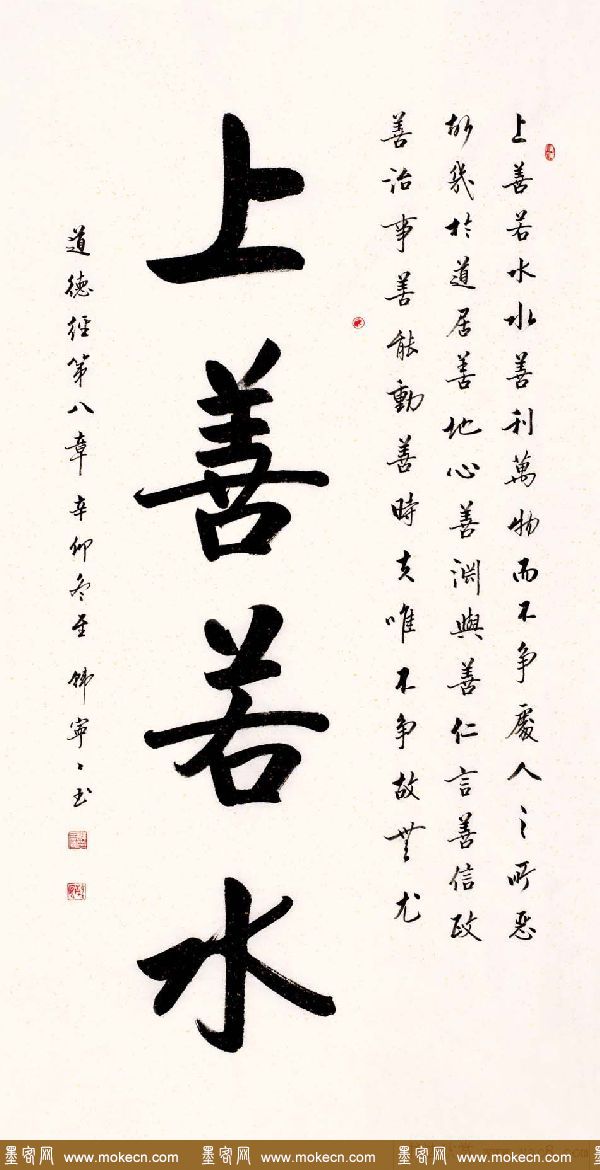 上善若水水善利萬物而不争處人之所惡
故幾於道居善地心善渊與善仁言善信政
善治事善能動善時夫唯不争故無尤
上善若水
道德經第八章 辛卯冬至 韩寧寧书
墨客网 www.mokecn.com 墨客网 www.mokecn.com 墨客网 www.mokecn.com